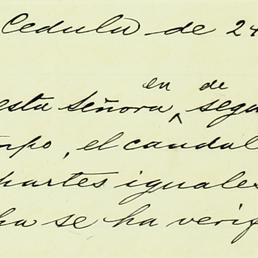 Cedula de 24
en de
esta señora, segu
mpo, el caudal
partes iguales
ha se ha verif